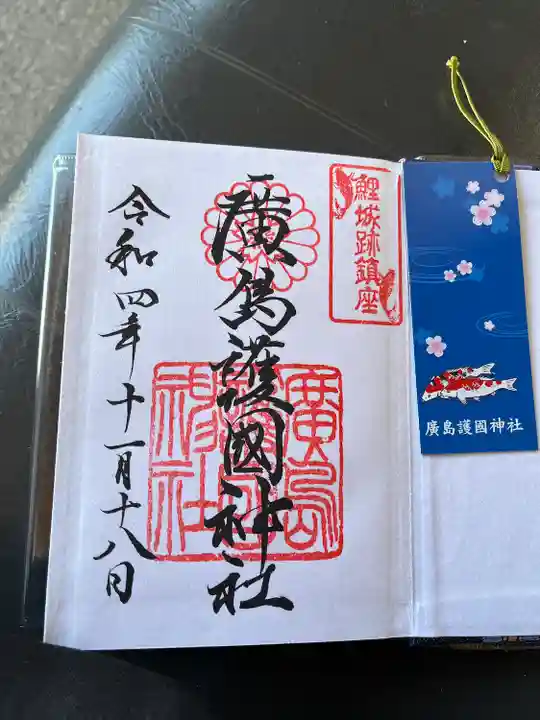 鯉城跡鎮座
廣島護國神社
廣島護國神社
令和四年十一月十八日
廣島護國神社